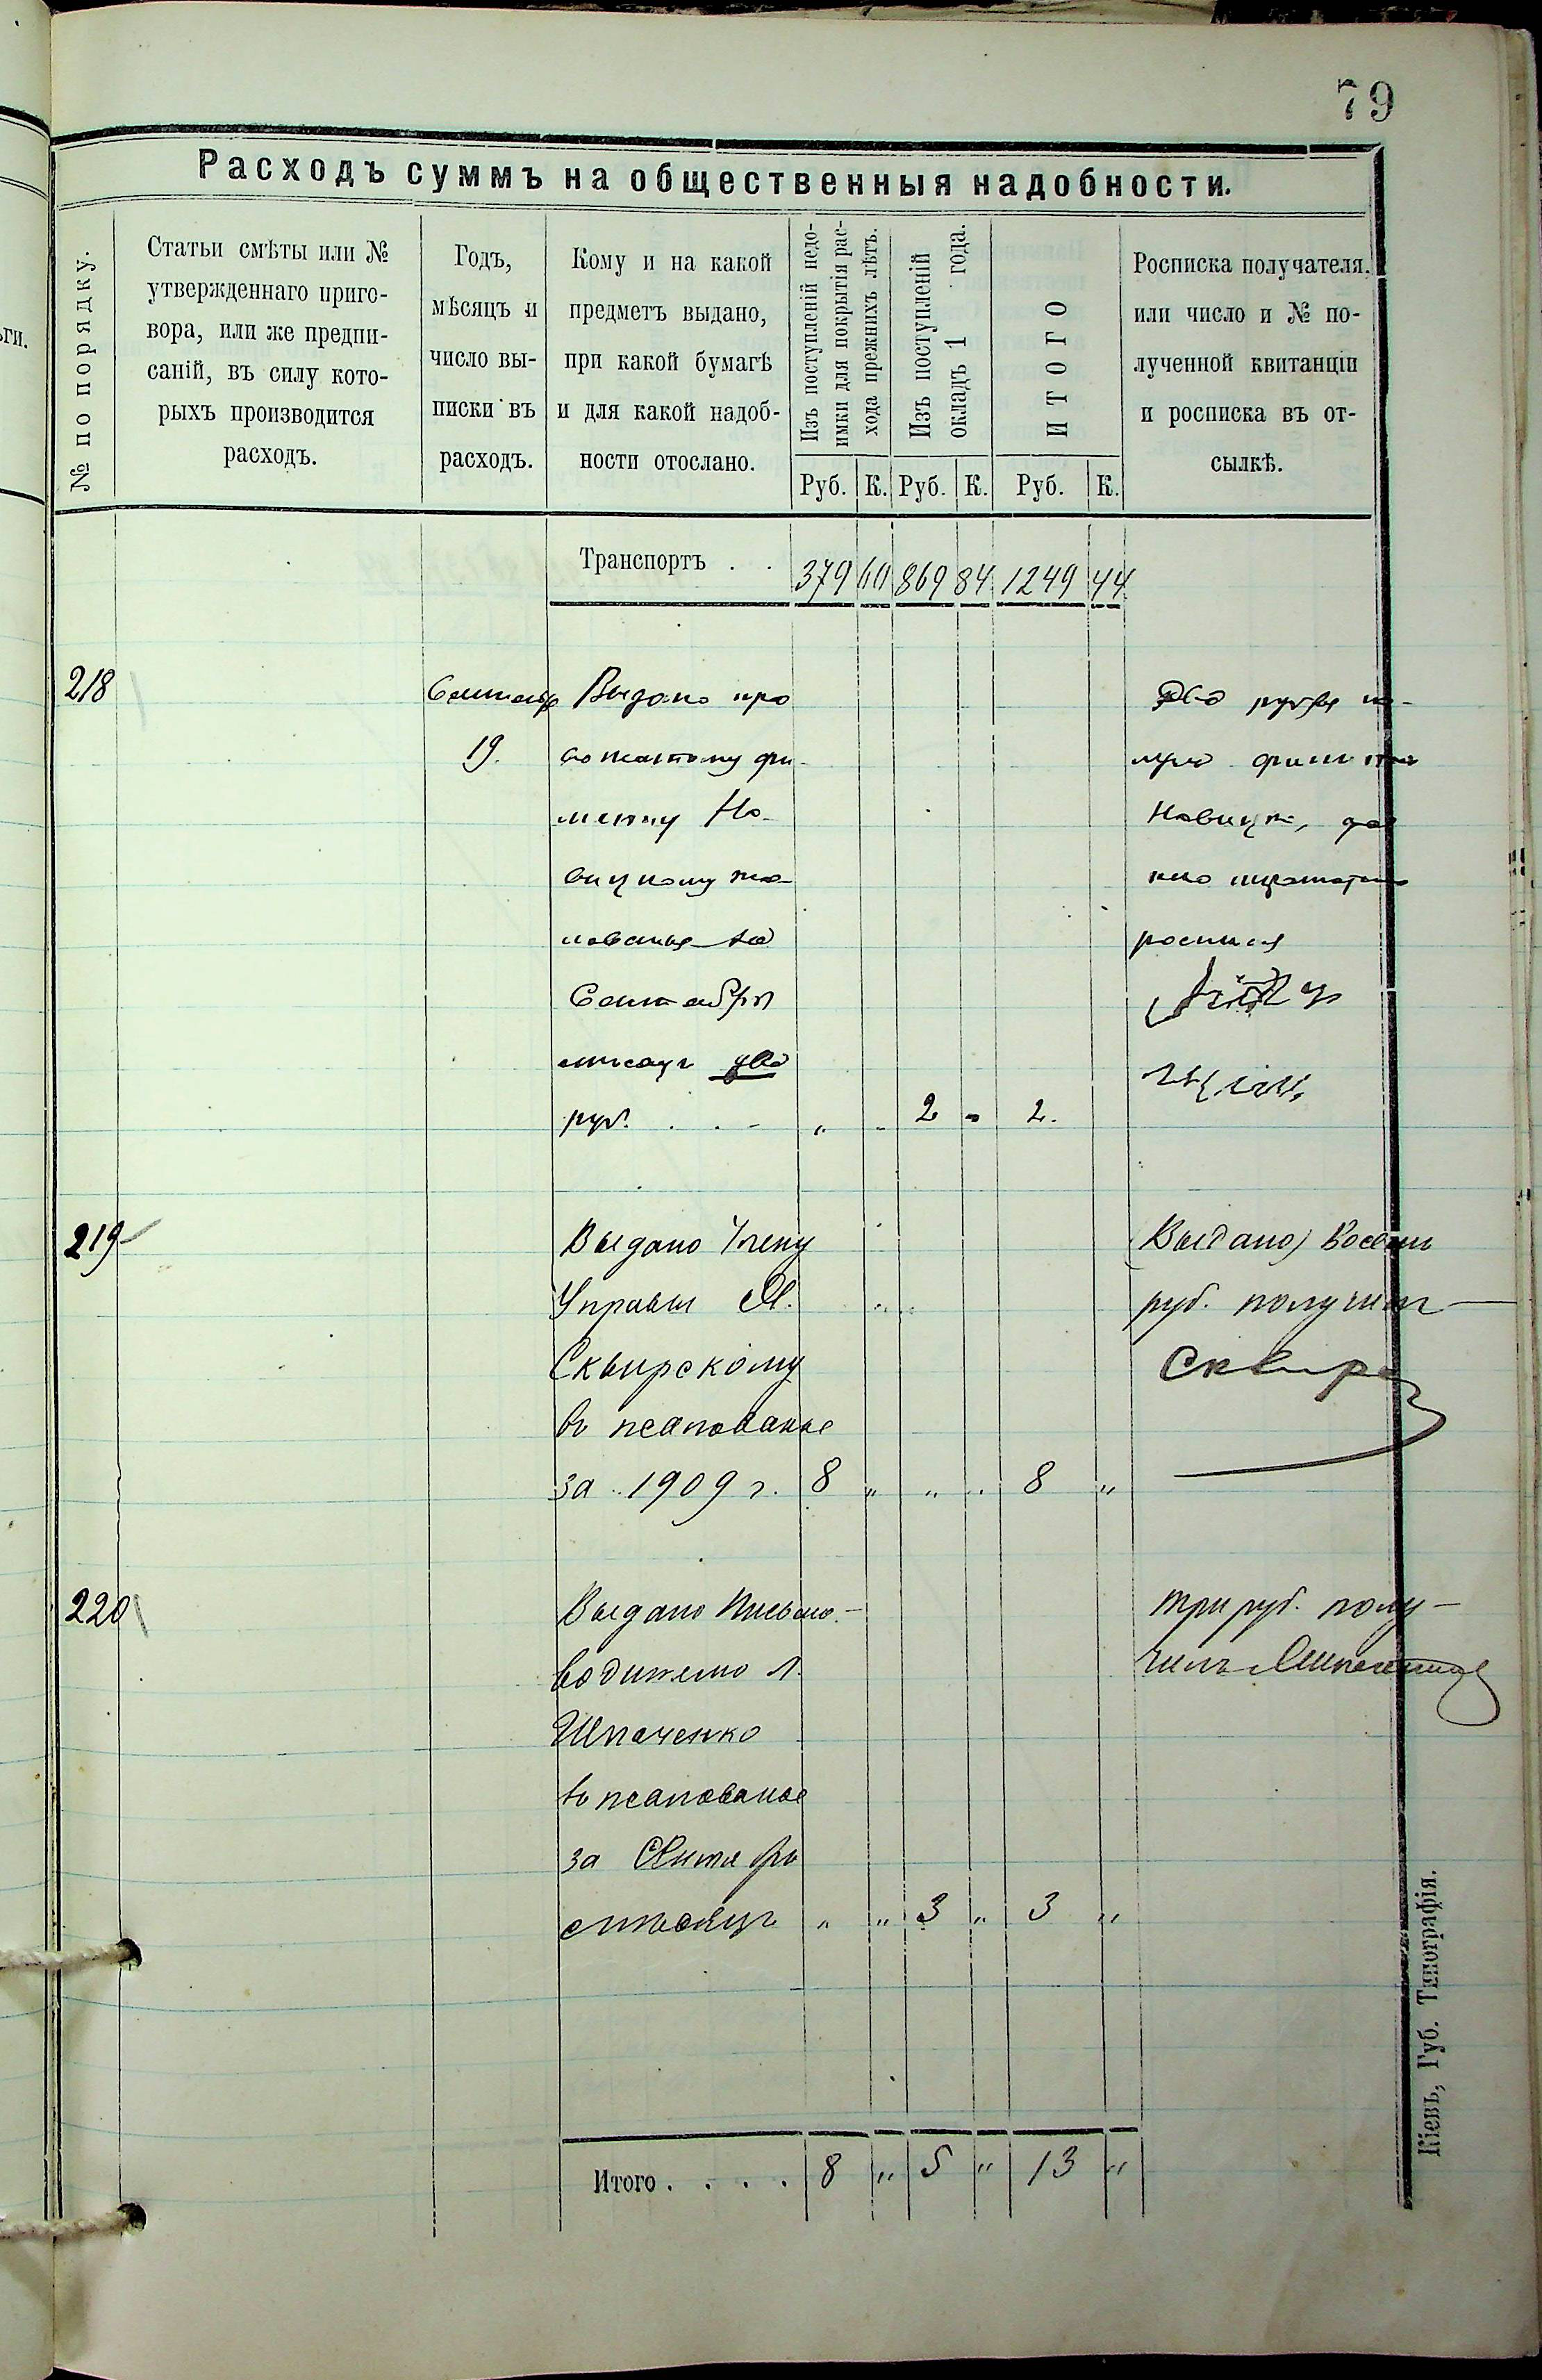 79
ьги.
Расходъ суммъ на общественныя надобности.
№ по порядку.
Статьи смѣты или №
утвержденнаго приго-
вора, или же предпи-
саній, въ силу кото-
рыхъ производится
расходъ.
Годъ,
мѣсяцъ и
число вы-
писки въ
расходъ.
Кому и на какой
предметъ выдано,
при какой бумагѣ
и для какой надоб-
ности отослано.
Изъ поступленій недо-
имки для покрытія рас-
хода прежнихъ лѣтъ.
Изъ поступленій
окладъ 1 года.
ИТОГО
Росписка получателя,
или число и № по-
лученной квитанціи
и росписка въ от-
сылкѣ.
Руб. К. Руб. К. Руб. К.
Транспортъ . . 379 60 869 84 1249 44
218 Выдано про
19.
Но-
вицкому жа-
лованье за
Сентябрь
мѣсяцъ два
руб. . . - „ - 2 - 2.
Два рубля по-
219 Выдано Члену
Управы
Сквирскому
въ жалованье
за 1909 г. 8 „ „ „ 8 „
Выдано) Восемь
руб. получилъ
Сквирс
220 Выдано Письмо-
водителю Л.
Шпаченко
въ жалованье
за Сентябрь
мѣсяцъ „ „ 3 „ 3 „
три руб. полу-
чилъ
Итого . . . . 8 „ 5 „ 13 „
Кіевъ, Губ. Типографія.